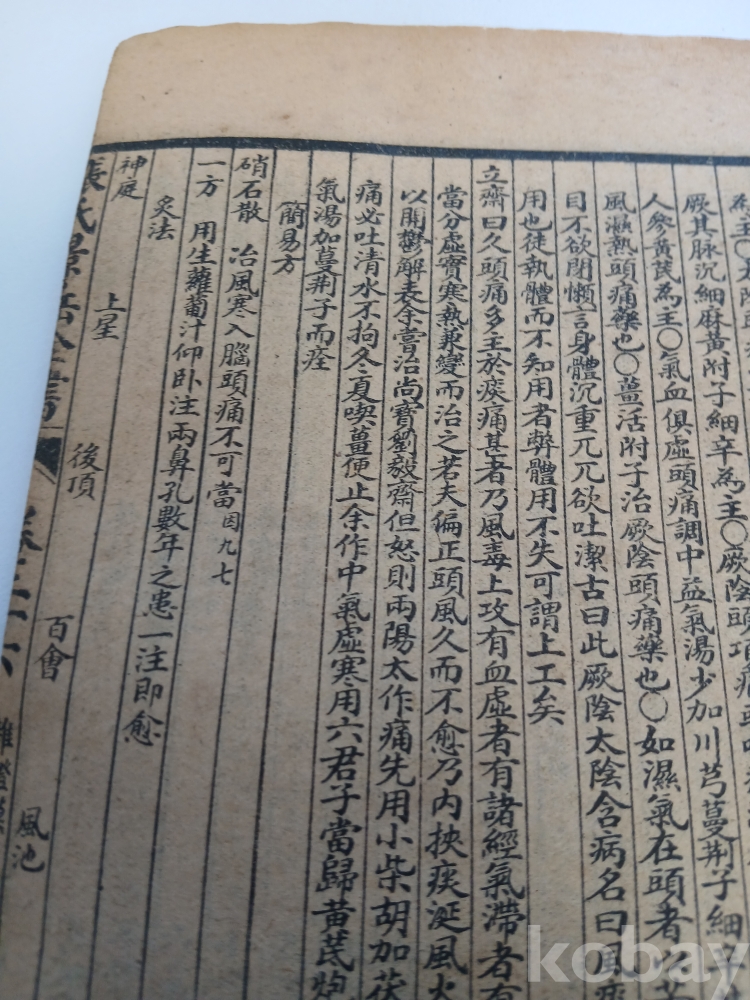 厥其脉沉細麻黃附子細辛為主〇厥陰頭項痛
人參黃芪為主〇氣血俱虛頭痛調中益氣湯少加川芎蔓荊子細辛
風濕熱頭痛藥也〇薑活附子治厥陰頭痛藥也〇如濕氣在頭者以苦
目不欲閉懶言身體沉重兀兀欲吐潔古曰此厥陰太陰合病名曰風痰
用也徒執體而不知用者弊體用不失可謂上工矣
立齋曰久頭痛多主於痰痛甚者乃風毒上攻有血虛者有諸經氣滯者有
當分虛實寒熱兼變而治之若夫偏正頭風久而不愈乃內挾痰涎風火
以開鬱解表余嘗治尚寶劉毅齋但怒則兩陽太作痛先用小柴胡加茯
痛必吐清水不拘冬夏喫薑便止余作中氣虛寒用六君子當歸黃芪炮
氣湯加蔓荊子而痊
簡易方
硝石散 冶風寒入腦頭痛不可當因九七
一方 用生蘿蔔汁仰卧注兩鼻孔數年之患一注即愈
灸法
神庭 上星 後項 百會 風池
張氏景岳全書 卷二十六 雜證謨
kobay